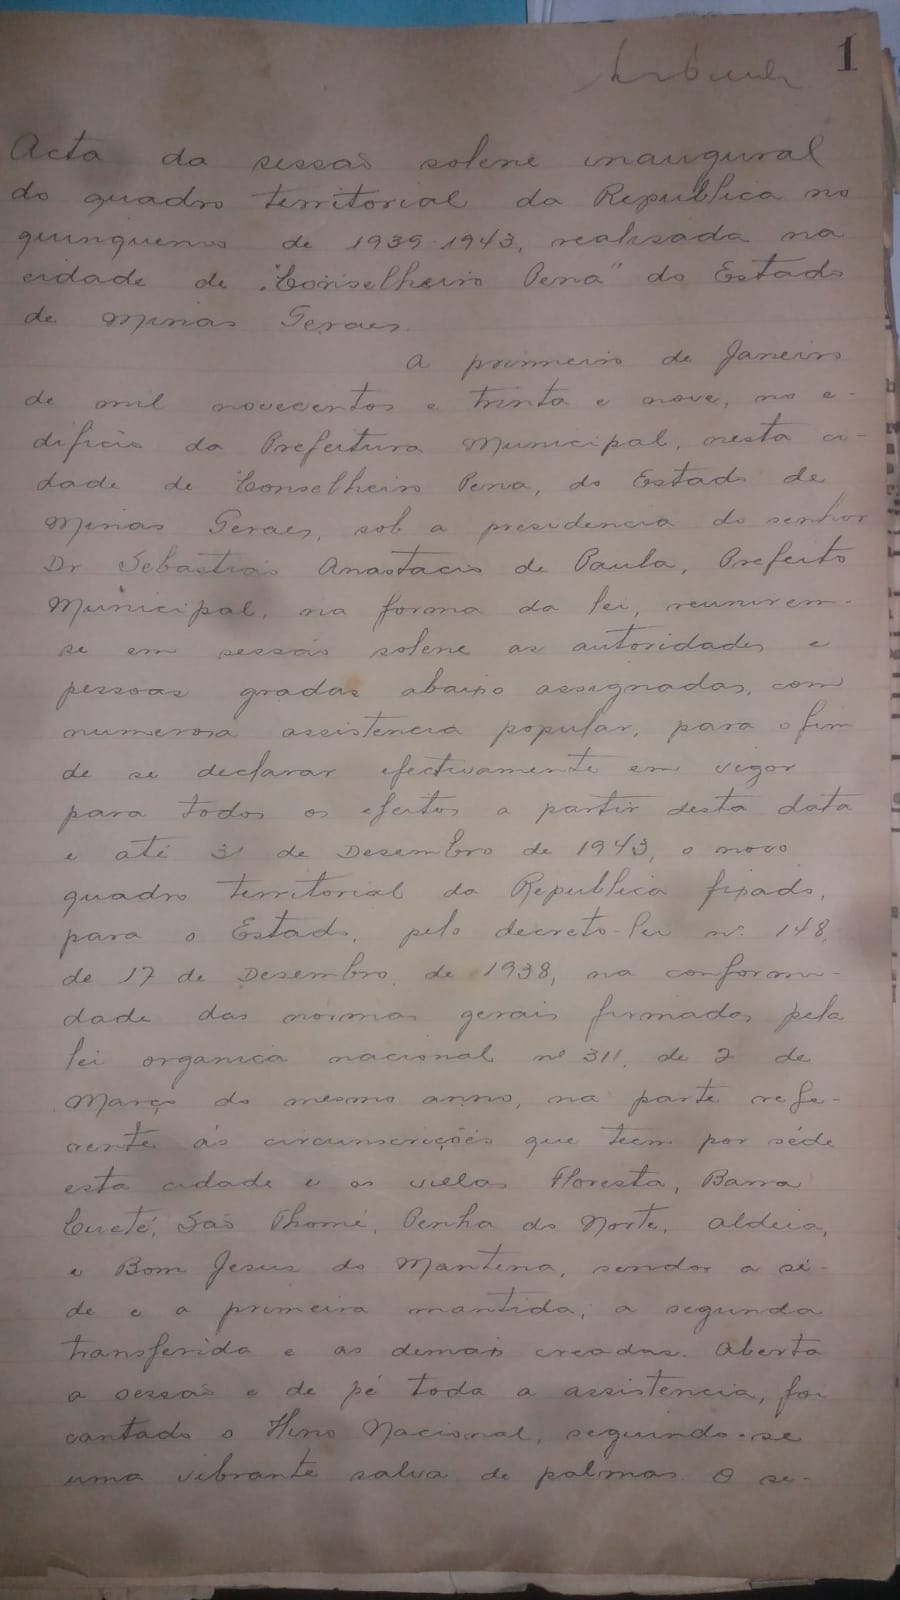 1
Acta da sessão solene inaugural
do quadro territorial da Republica no
quinquenio de 1939-1943, realisada na
cidade de "Conselheiro Pena" do Estado
de Minas Geraes.
A primeiro de Janeiro
de mil novecentos e trinta e nove, no e-
dificio da Prefeitura Municipal, nesta ci-
dade de Conselheiro Pena, do Estado de
Minas Geraes, sob a presidencia do senhor
Dr Sebastião Anastacio de Paula, Prefeito
Municipal, na forma da lei, reunirem-
se em sessão solene as autoridades e
pessoas gradas abaixo assignadas, com
numerosa assistencia popular, para o fim
de se declarar efectivamente em vigor
para todos os efeitos a partir desta data
e até 31 de Desembro de 1943, o novo
quadro territorial da Republica fixado,
para o Estado, pelo decreto-lei n. 148,
de 17 de Desembro, de 1938, na conformi-
dade das normas gerais firmadas pela
lei organica nacional nº 311, de 2 de
Março do mesmo anno, na parte refe-
rente ás circunscrições que teem por séde
esta cidade e as vilas Floresta, Barra
Cueté, São Thomé, Penha do Norte, Aldeia,
e Bom Jesus do Mantena, sendo a sé-
de e a primeira mantida, a segunda
transferida e as demais creadas. Aberta
a sessão e de pé toda a assistencia, foi
cantado o Hino Nacional, seguindo-se
uma vibrante salva de palmas. O se-